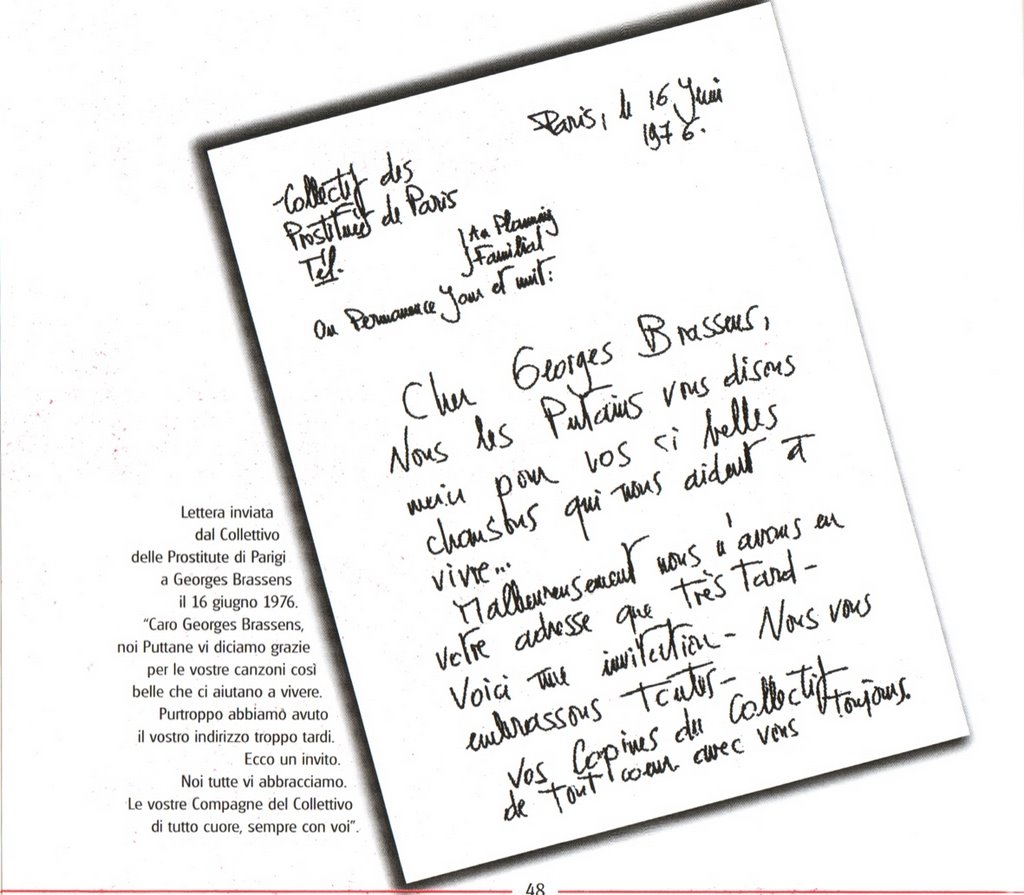 Paris, le 16 Juin
1976.
Collectif des
Prostituées de Paris
Tél.
} Au Planning
Familial
ou Permanence Jour et nuit:
Cher Georges Brassens,
Nous les Putains vous disons
merci pour vos si belles
chansons qui nous aident à
vivre...
Malheureusement nous n'avons eu
votre adresse que très tard-
Voici une invitation- Nous vous
embrassons toutes-
Vos Copines du Collectif
de tout coeur avec vous toujours.
Lettera inviata
dal Collettivo
delle Prostitute di Parigi
a Georges Brassens
il 16 giugno 1976.
"Caro Georges Brassens,
noi Puttane vi diciamo grazie
per le vostre canzoni così
belle che ci aiutano a vivere.
Purtroppo abbiamo avuto
il vostro indirizzo troppo tardi.
Ecco un invito.
Noi tutte vi abbracciamo.
Le vostre Compagne del Collettivo
di tutto cuore, sempre con voi".
48